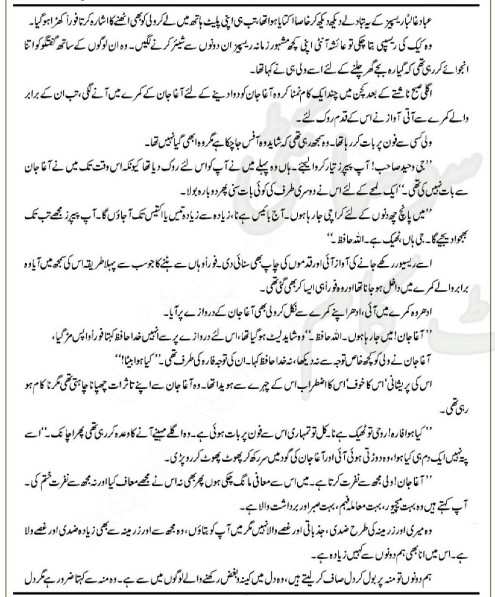 عباد غالباً ریسپیز کے یہ تبادلے دیکھ دیکھ کر خاصا اکتایا ہوا تھا، تب ہی اپنی پلیٹ ہاتھ میں لے کر ولی کو بھی اٹھنے کا اشارہ کرتا فوراً کھڑا ہو گیا۔
وہ کیک کی ریسپی بتا چکی تو عائشہ آنٹی اپنی کچھ مشہور زمانہ ریسپیز ان دونوں سے شیئر کرنے لگیں۔ وہ ان لوگوں کے ساتھ گفتگو کو اتنا
انجوائے کر رہی تھی کہ گیارہ بجے گھر چلنے کے لئے اسے ولی ہی نے کہا تھا۔
اگلی صبح ناشتے کے بعد کچن میں چند ایک کام نمٹا کر وہ آغا جان کو دوا دینے کے لئے آغا جان کے کمرے میں آنے لگی، تب ان کے برابر
والے کمرے سے آتی آواز نے اس کے قدم روک لئے۔
ولی کسی سے فون پر بات کر رہا تھا۔ وہ سمجھ رہی تھی کہ شاید وہ آفس جا چکا ہے مگر وہ ابھی گیا نہیں تھا۔
"جی وحید صاحب! آپ پیپرز تیار کروا لیجئے۔ ہاں وہ پہلے میں نے آپ کو اس لئے روک دیا تھا کیونکہ اس وقت تک میں نے آغا جان
سے بات نہیں کی تھی۔" ایک لمحے کے لئے اس نے دوسری طرف کی کوئی بات سنی پھر دوبارہ بولا۔
"میں پانچ چھ دنوں کے لئے کراچی جا رہا ہوں۔ آج بائیس ہے نا، زیادہ سے زیادہ تیس یا اکتیس تک آ جاؤں گا۔ آپ پیپرز مجھے تب تک
بھجوا دیجیے گا۔ جی ہاں ٹھیک ہے۔ اللہ حافظ۔"
اسے ریسیور رکھے جانے کی آواز آئی اور قدموں کی چاپ بھی سنائی دی۔ فوراً وہاں سے ہٹنے کا جو سب سے پہلا طریقہ اس کی سمجھ میں آیا وہ
برابر والے کمرے میں داخل ہو جانا تھا اور وہ فوراً ہی ایسا کر بھی گئی تھی۔
ادھر وہ کمرے میں آئی، ادھر اپنے کمرے سے نکل کر ولی بھی آغا جان کے دروازے پر آیا۔
"آغا جان! میں جا رہا ہوں۔ اللہ حافظ۔" وہ شاید لیٹ ہو گیا تھا، اس لئے دروازے پر سے انہیں خدا حافظ کہتا فوراً واپس مڑ گیا،
آغا جان نے ولی کو کچھ خاص توجہ سے نہ دیکھا، نہ خدا حافظ کہا۔ ان کی توجہ فارہ کی طرف تھی۔ "کیا ہوا بیٹا!"
اس کی پریشانی' اس کا خوف' اس کا اضطراب اس کے چہرے سے ہویدا تھا۔ وہ آغا جان سے اپنے تاثرات چھپانا چاہتی تھی مگر ناکام ہو
رہی تھی۔
"کیا ہوا فارہ! روحی تو ٹھیک ہے نا۔ کل تو تمہاری اس سے فون پر بات ہوئی ہے۔ وہ اگلے مہینے آنے کا وعدہ کر رہی تھی پھر اچانک۔" اسے
پتہ نہیں ایک دم ہی کیا ہوا، وہ دوڑتی ہوئی آئی اور آغا جان کی گود میں سر رکھ کر پھوٹ پھوٹ کر رو پڑی۔
"آغا جان! ولی مجھ سے نفرت کرتا ہے۔ میں اس سے معافی مانگ چکی ہوں پھر بھی نہ اس نے مجھے معاف کیا اور نہ مجھ سے نفرت ختم کی۔
آپ کہتے ہیں وہ بہت میچیور، بہت معاملہ فہم، بہت صبر اور برداشت والا ہے۔
وہ میری اور زرمینہ کی طرح ضدی، جذباتی اور غصے والا نہیں مگر میں آپ کو بتاؤں، وہ مجھ سے اور زرمینہ سے بھی زیادہ ضدی اور غصے والا
ہے۔ اس میں انا بھی ہم دونوں سے کہیں زیادہ ہے۔
ہم دونوں تو منہ پر بول کر دل صاف کر لیتے ہیں، وہ دل میں کینہ و بغض رکھنے والے لوگوں میں سے ہے۔ وہ منہ سے کہتا ضرور ہے مگر دل